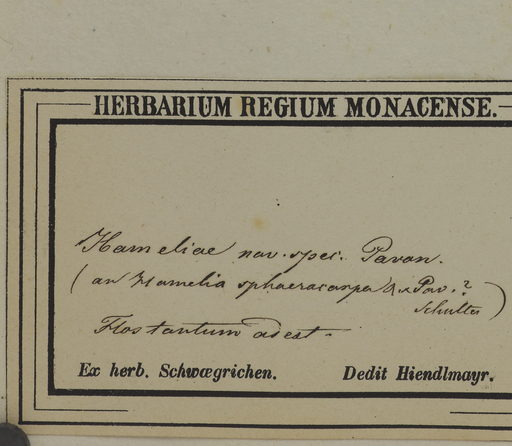 HERBARIUM REGIUM MONACENSE.
Hameliae nov. spec. Pavon.
(an Hamelia sphaerocarpa R. & Pav.?
Schultes)
Flos tantum adest.
Ex herb. Schwægrichen. Dedit Hiendlmayr.